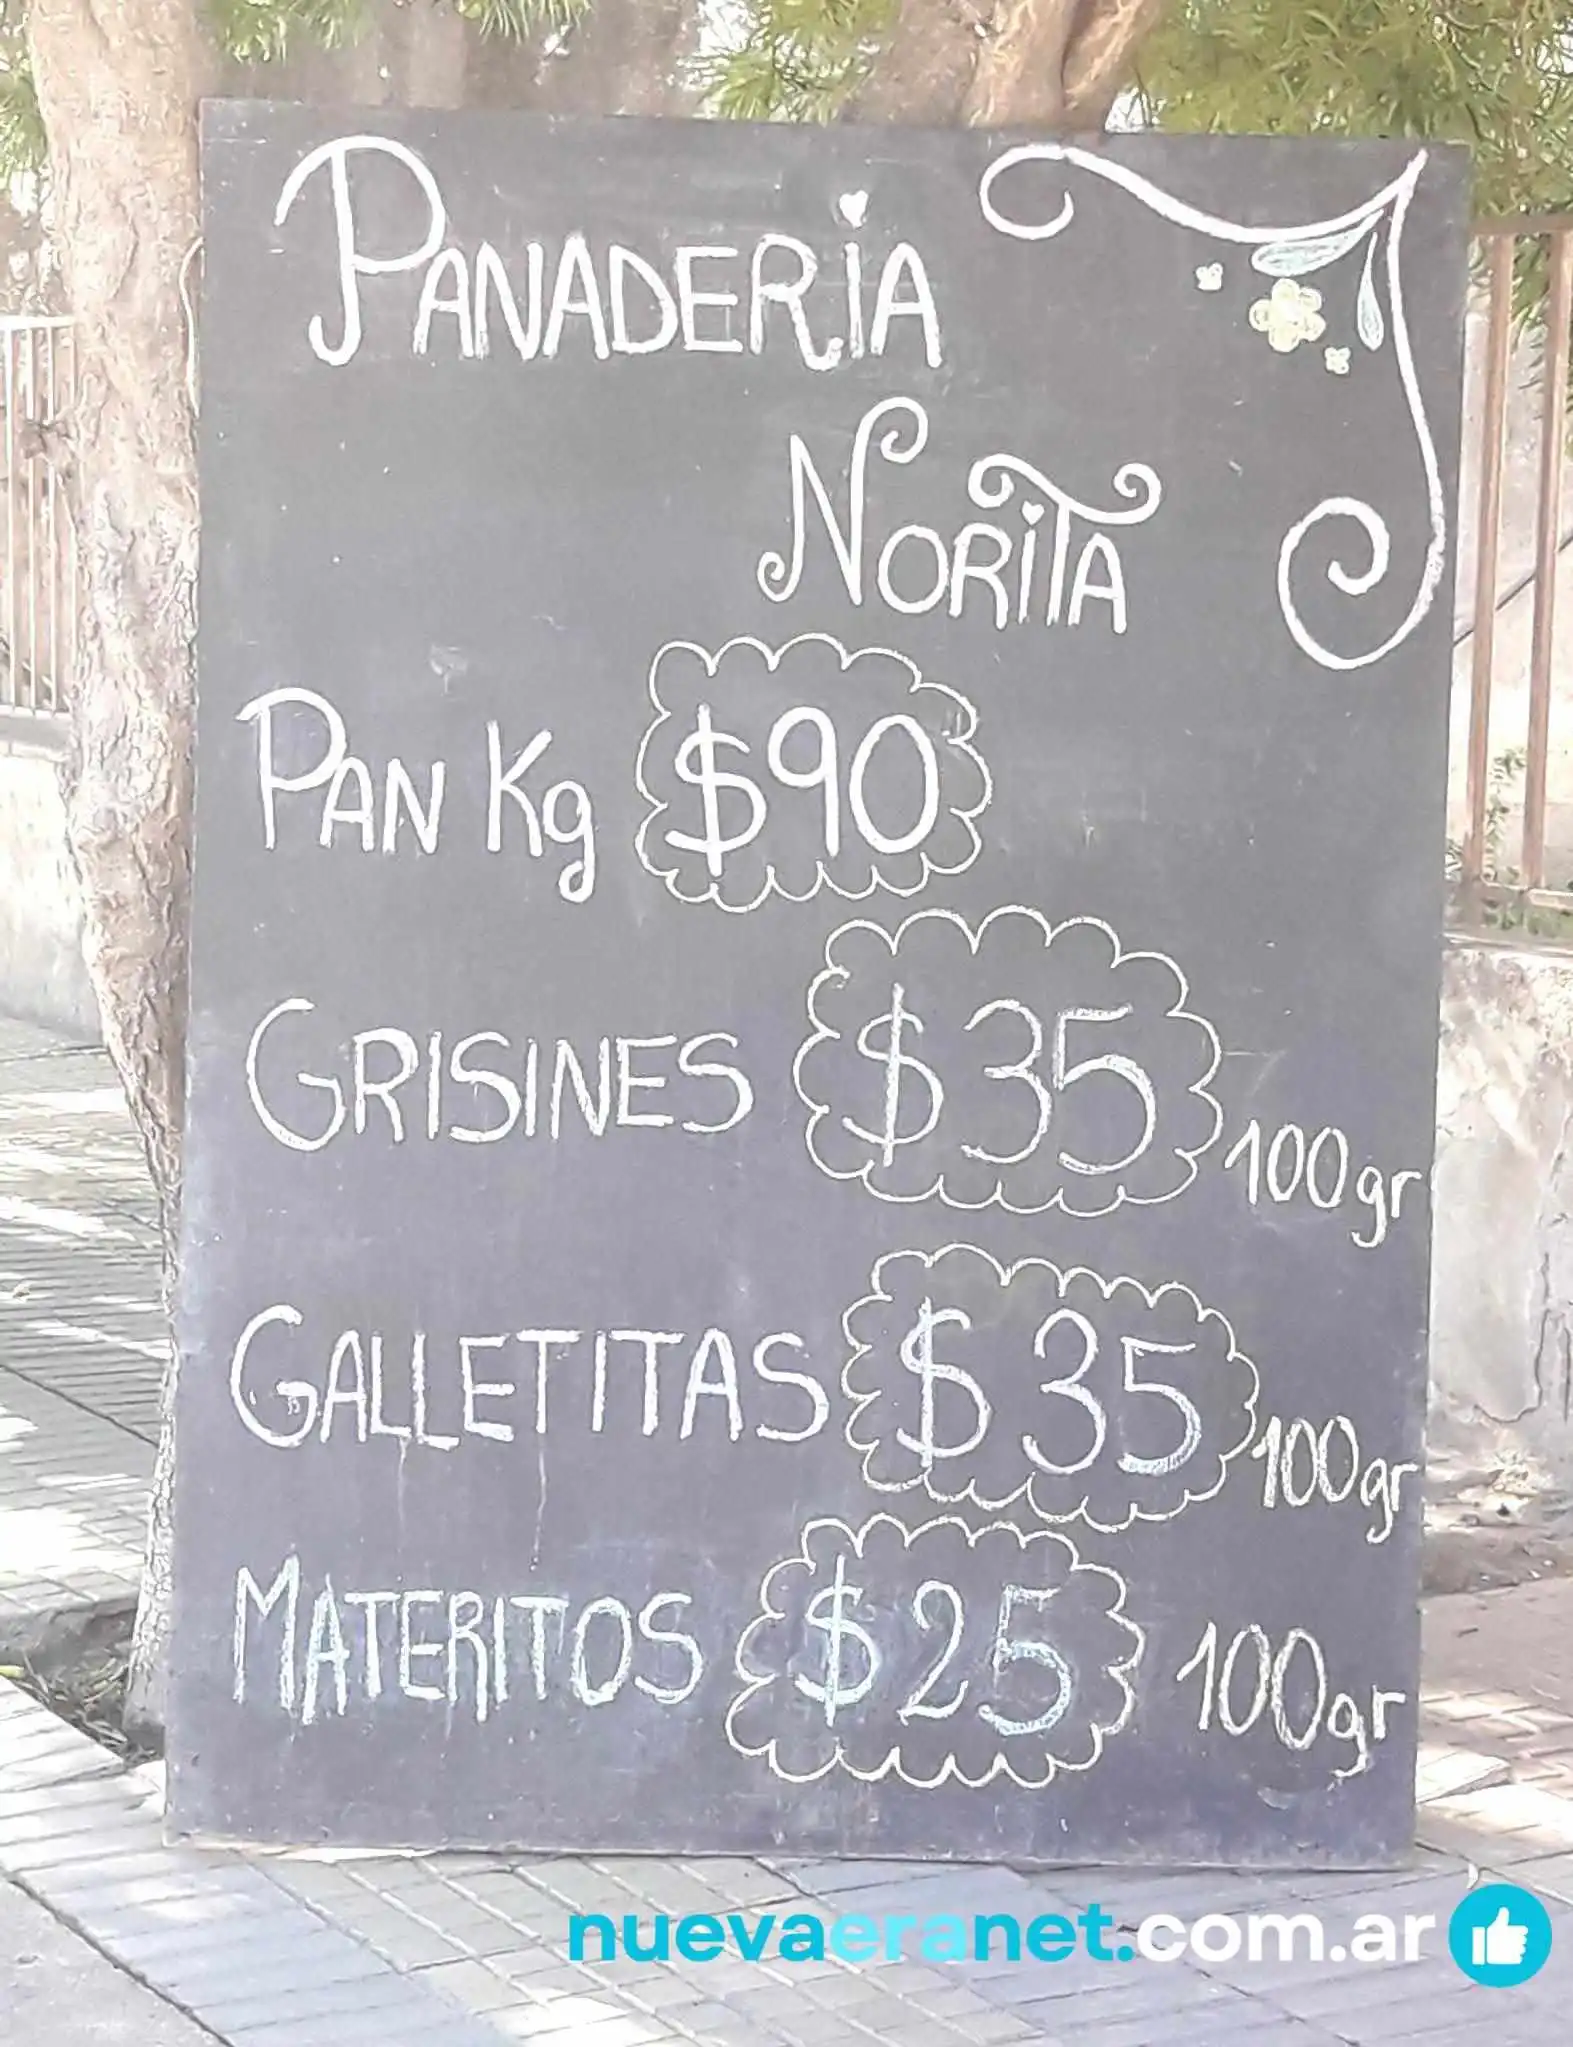 PANADERIA
NORITA
PAN Kg $90
GRISINES $35 100gr
GALLETITAS $35 100gr
MATERITOS $25 100gr
nuevaeranet.com.ar